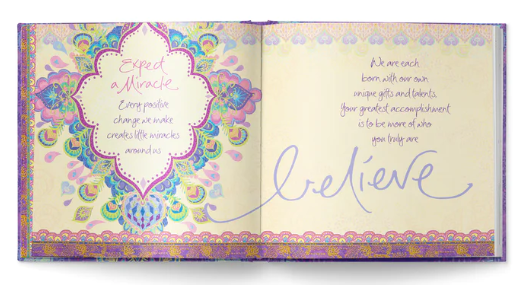 Expect
a Miracle
Every positive
change we make
creates little miracles
around us
We are each
born with our own
unique gifts and talents.
Your greatest accomplishment
is to be more of who
you truly are
believe